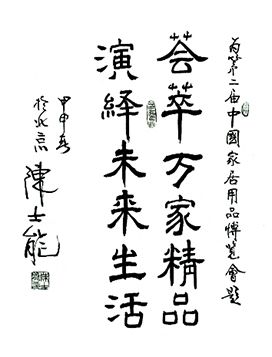 为第二届中國家居用品博览會题
荟萃万家精品
演绎未来生活
甲申春
於北京
陳士能